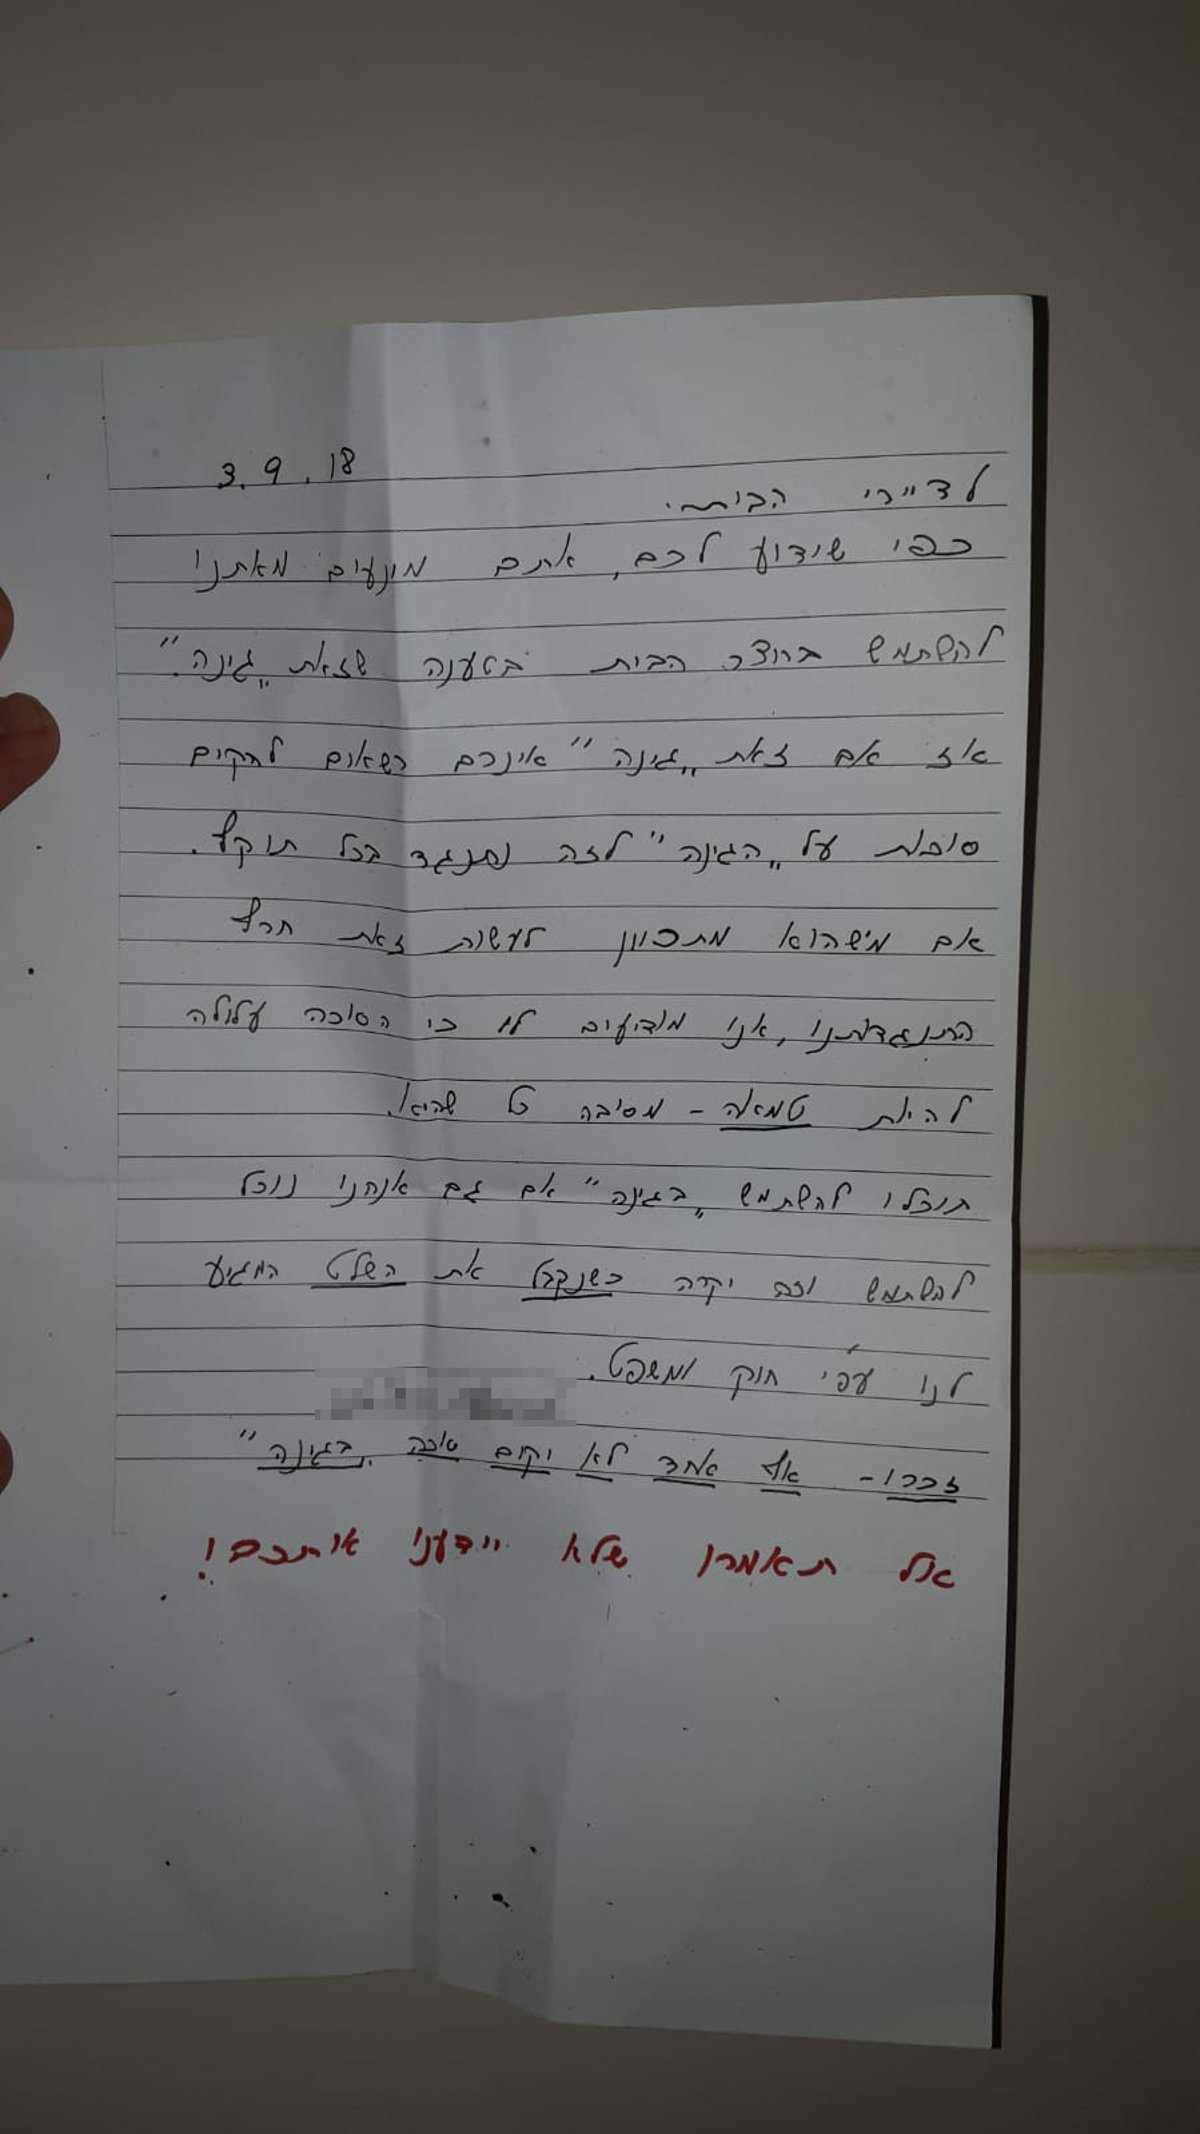 3.9.18
לדיירי הבית.
כפי שידוע לכם, אתם מונעים מאתנו
להשתמש בחצר הבית בטענה שזאת "גינה".
אז אם זאת "גינה" אינכם רשאים להקים
סוכות על "הגינה" לזה נתנגד בכל תוקף.
אם מישהוא מתכוון לעשות זאת חרף
התנגדותנו, אנו מודיעים לו כי הסוכה עלולה
להיות טמאה - מסיבה כל שהיא.
תוכלו להשתמש "בגינה" אם גם אנחנו נוכל
להשתמש וזה יקרה כשנקבל את השלט המגיע
לנו עפ"י חוק ומשפט.
זכרו - אף אחד לא יקים סוכה "בגינה"
אל תאמרו שלא יידענו אותכם!